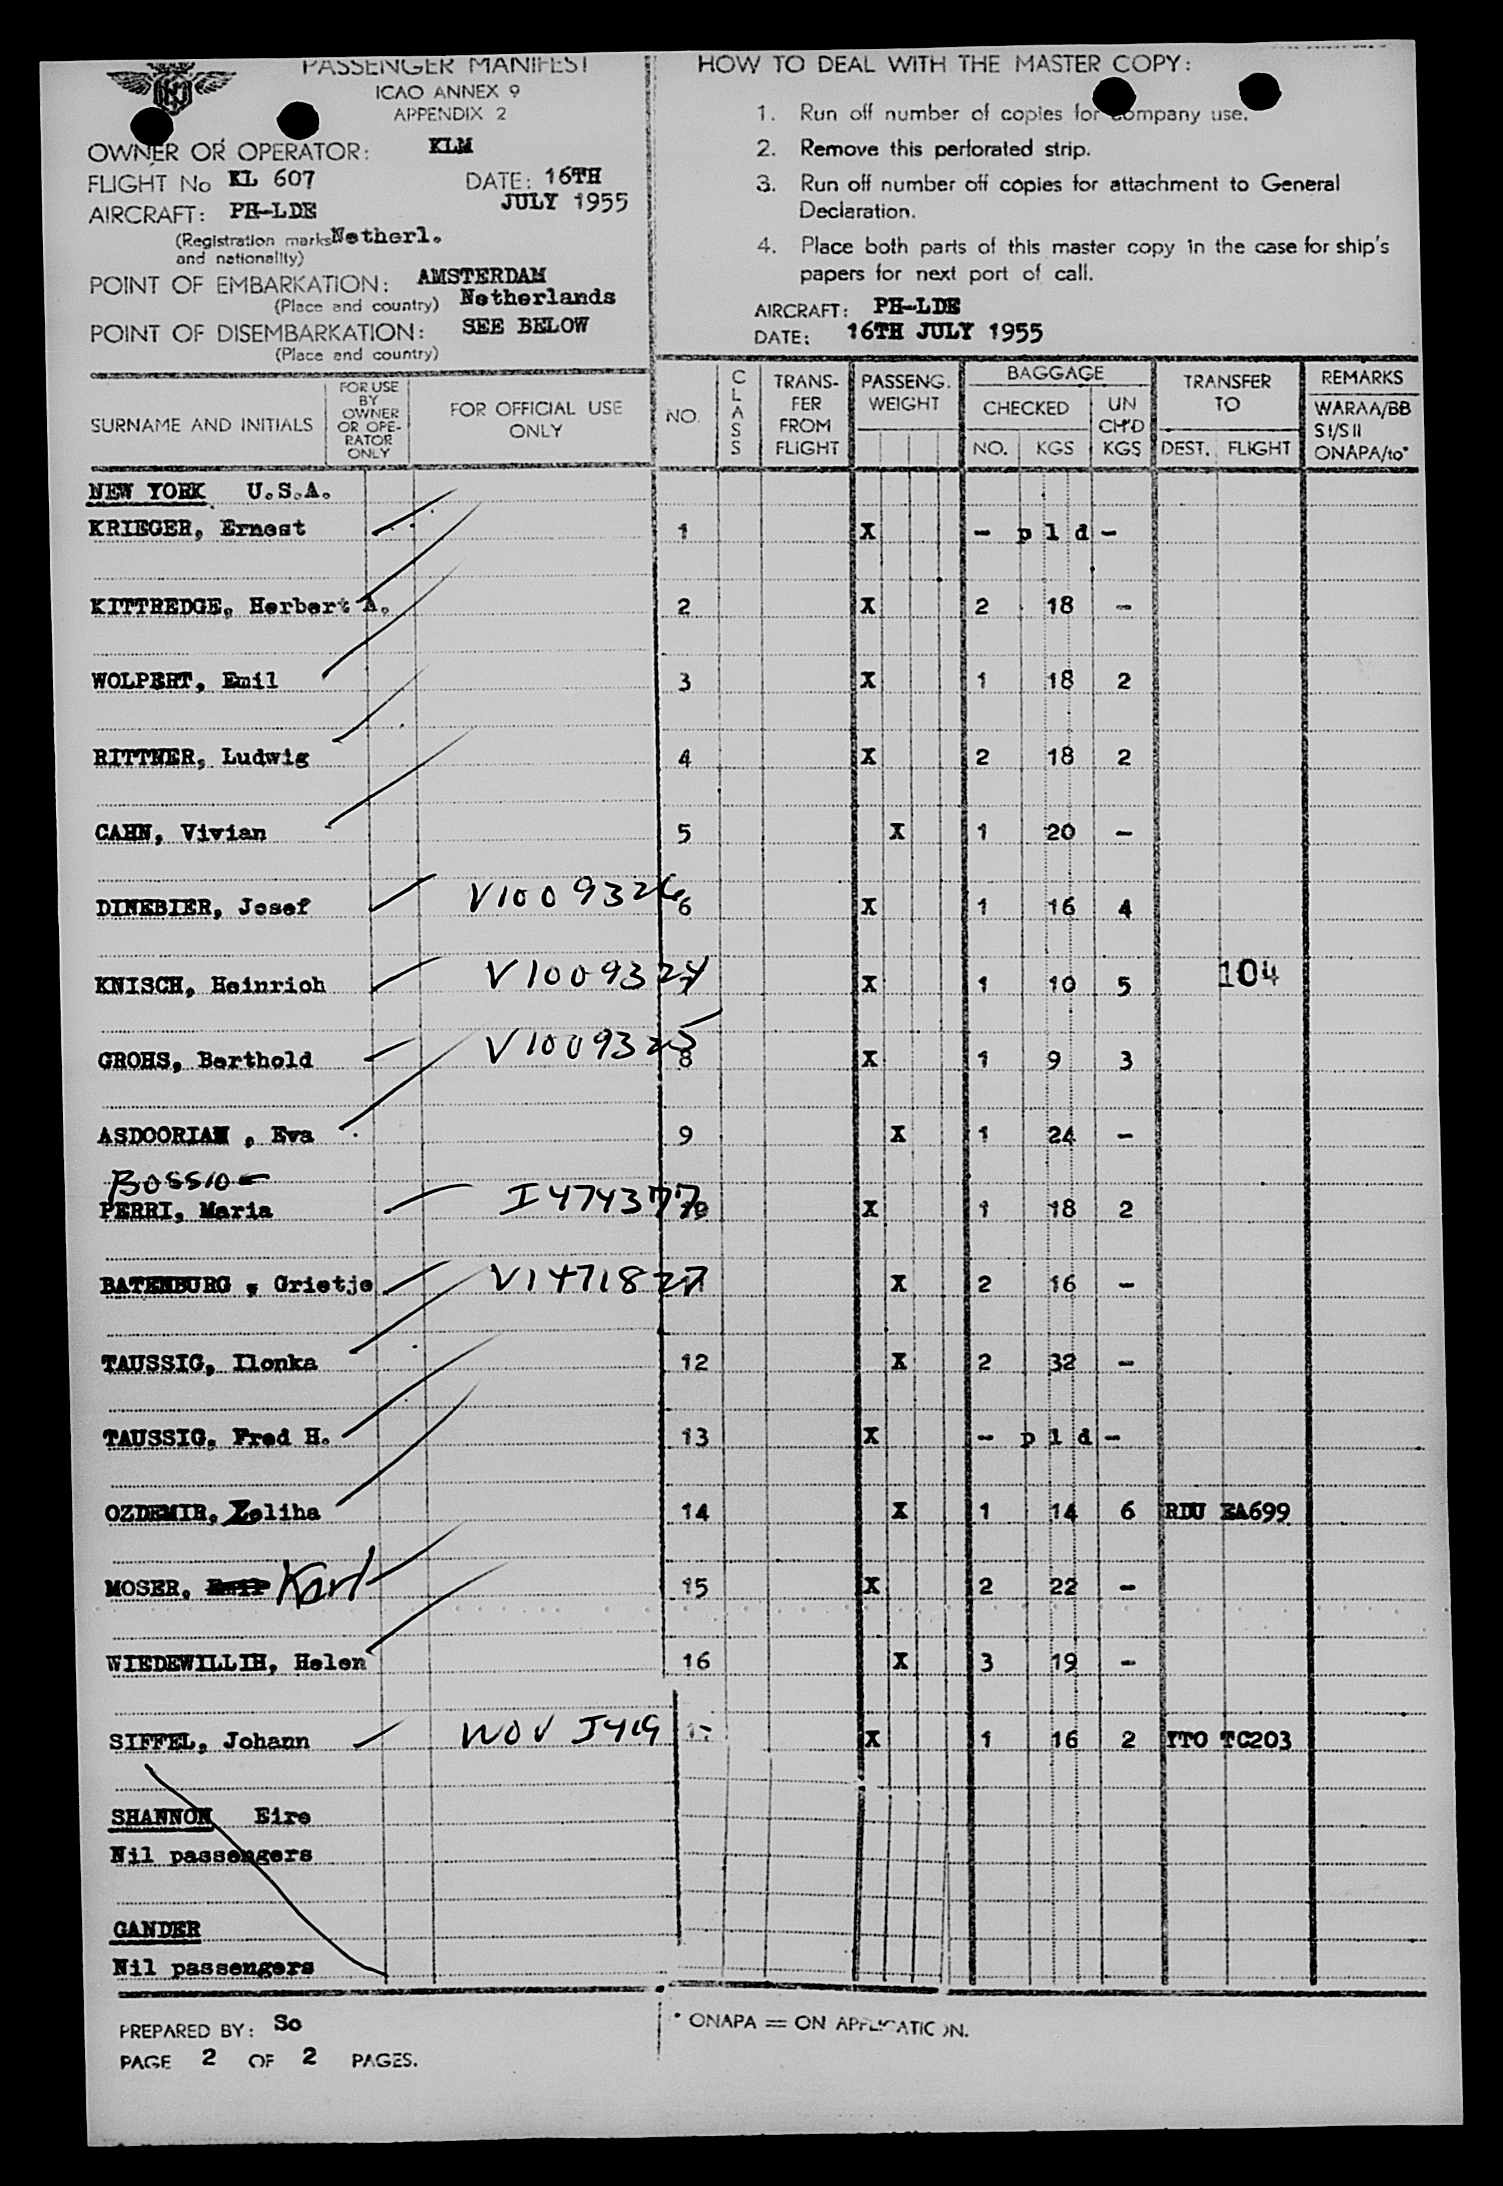 PASSENGER MANIFEST
ICAO ANNEX 9
APPENDIX 2
OWNER OR OPERATOR: KLM
FLIGHT No KL 607 DATE: 16TH JULY 1955
AIRCRAFT: PH-LDE
(Registration marks Netherl.
and nationality)
POINT OF EMBARKATION: AMSTERDAM
(Place and country) Netherlands
POINT OF DISEMBARKATION: SEE BELOW
(Place and country)
HOW TO DEAL WITH THE MASTER COPY:
1. Run off number of copies for company use.
2. Remove this perforated strip.
3. Run off number off copies for attachment to General
Declaration.
4. Place both parts of this master copy in the case for ship's
papers for next port of call.
AIRCRAFT: PH-LDE
DATE: 16TH JULY 1955
SURNAME AND INITIALS FOR USE BY OWNER OR OPE-RATOR ONLY FOR OFFICIAL USE ONLY NO. CLASS TRANS-FER FROM FLIGHT PASSENG. WEIGHT BAGGAGE CHECKED NO. KGS UN CH'D KGS TRANSFER TO DEST. FLIGHT REMARKS WARAA/BB SI/SII ONAPA/to*
NEW YORK U.S.A.
KRIEGER, Ernest 1 X - p l d -
KITTREDGE, Herbert A. 2 X 2 18 -
WOLPERT, Emil 3 X 1 18 2
RITTNER, Ludwig 4 X 2 18 2
CAHN, Vivian 5 X 1 20 -
DINEBIER, Josef V1009326 6 X 1 16 4
KNISCH, Heinrich V1009324 X 1 10 5 104
GROHS, Berthold V1009325 8 X 1 9 3
ASDOORIAN , Eva 9 X 1 24 -
Bossio
PERRI, Maria I474377 10 X 1 18 2
BATENBURG , Grietje V1471827 X 2 16 -
TAUSSIG, Ilonka 12 X 2 32 -
TAUSSIG, Fred H. 13 X - p l d -
OZDEMIR, Zeliha 14 X 1 14 6 RDU EA699
MOSER, Emil Karl 15 X 2 22 -
WIEDEWILLIH, Helen 16 X 3 19 -
SIFFEL, Johann WOV J419 X 1 16 2 YTO TC203
SHANNON Eire
Nil passengers
GANDER
Nil passengers
PREPARED BY: So
PAGE 2 OF 2 PAGES.
* ONAPA = ON APPLICATION.